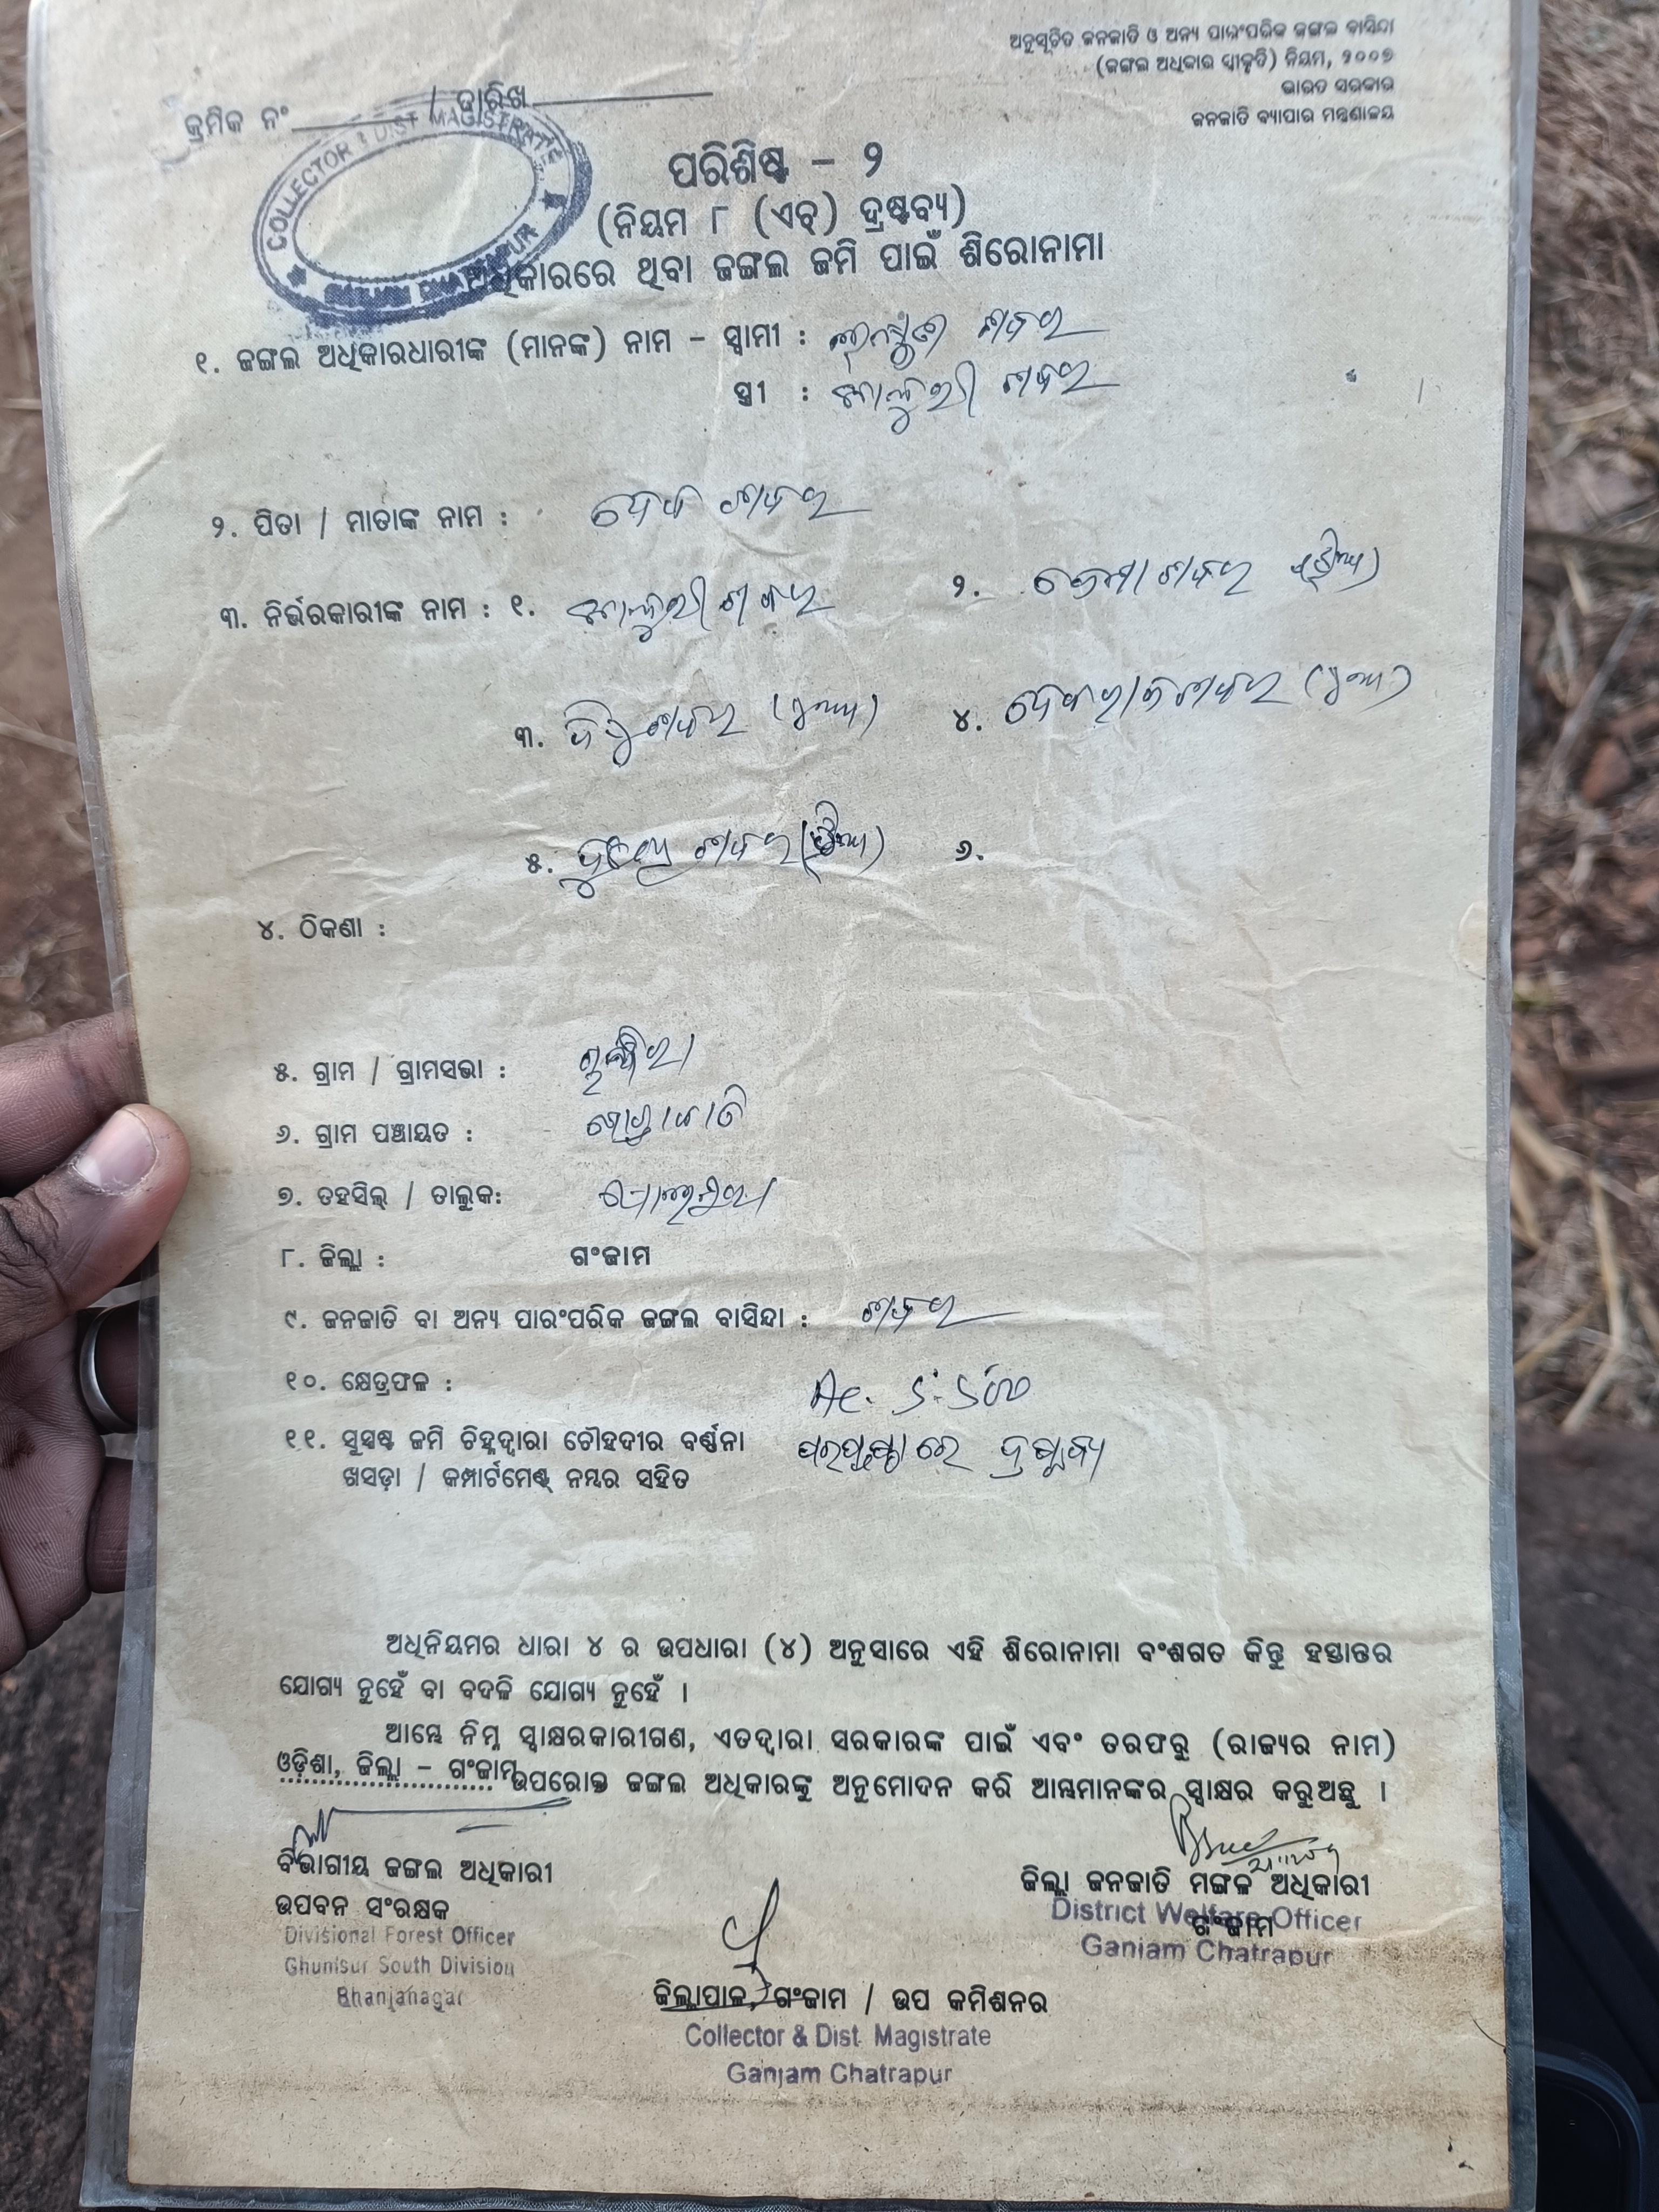 ଅନୁସୂଚିତ ଜନଜାତି ଓ ଅନ୍ୟ ପାରଂପରିକ ଜଙ୍ଗଲ ବାସିନ୍ଦା
(ଜଙ୍ଗଲ ଅଧିକାର ସ୍ୱୀକୃତି) ନିୟମ, ୨୦୦୭
ଭାରତ ସରକାର
ଜନଜାତି ବ୍ୟାପାର ମନ୍ତ୍ରଣାଳୟ
କ୍ରମିକ ନଂ / ତାରିଖ
COLLECTOR & DIST MAGISTRATE
ପରିଶିଷ୍ଟ – ୨
(ନିୟମ ୮ (ଏଚ୍) ଦ୍ରଷ୍ଟବ୍ୟ)
ଅଧିକାରରେ ଥିବା ଜଙ୍ଗଲ ଜମି ପାଇଁ ଶିରୋନାମା
୧. ଜଙ୍ଗଲ ଅଧିକାରଧାରୀଙ୍କ (ମାନଙ୍କ) ନାମ – ସ୍ୱାମୀ : ଶବର
ସ୍ତ୍ରୀ : ଶବର
୨. ପିତା / ମାତାଙ୍କ ନାମ : ଶବର
୩. ନିର୍ଭରକାରୀଙ୍କ ନାମ : ୧. ଶବର ୨. ଶବର (ଝିଅ)
୩. ଶବର (ପୁଅ) ୪. ଦେବରାଜ ଶବର (ପୁଅ)
୫. ଶବର ୬.
୪. ଠିକଣା :
୫. ଗ୍ରାମ / ଗ୍ରାମସଭା :
୬. ଗ୍ରାମ ପଞ୍ଚାୟତ :
୭. ତହସିଲ୍ / ତାଲୁକ:
୮. ଜିଲ୍ଲା : ଗଂଜାମ
୯. ଜନଜାତି ବା ଅନ୍ୟ ପାରଂପରିକ ଜଙ୍ଗଲ ବାସିନ୍ଦା : ଶବର
୧୦. କ୍ଷେତ୍ରଫଳ : Ac.
୧୧. ସୁସ୍ପଷ୍ଟ ଜମି ଚିହ୍ନଦ୍ୱାରା ଚୌହଦୀର ବର୍ଣ୍ଣନା ପରପୃଷ୍ଠାରେ ଦ୍ରଷ୍ଟବ୍ୟ
ଖସଡ଼ା / କମ୍ପାର୍ଟମେଣ୍ଟ୍ ନମ୍ବର ସହିତ
ଅଧିନିୟମର ଧାରା ୪ ର ଉପଧାରା (୪) ଅନୁସାରେ ଏହି ଶିରୋନାମା ବଂଶଗତ କିନ୍ତୁ ହସ୍ତାନ୍ତର
ଯୋଗ୍ୟ ନୁହେଁ ବା ବଦଳି ଯୋଗ୍ୟ ନୁହେଁ ।
ଆମ୍ଭେ ନିମ୍ନ ସ୍ୱାକ୍ଷରକାରୀଗଣ, ଏତଦ୍ୱାରା ସରକାରଙ୍କ ପାଇଁ ଏବଂ ତରଫରୁ (ରାଜ୍ୟର ନାମ)
ଓଡ଼ିଶା, ଜିଲ୍ଲା – ଗଂଜାମ ଉପରୋକ୍ତ ଜଙ୍ଗଲ ଅଧିକାରଙ୍କୁ ଅନୁମୋଦନ କରି ଆମ୍ଭମାନଙ୍କର ସ୍ୱାକ୍ଷର କରୁଅଛୁ ।
ବିଭାଗୀୟ ଜଙ୍ଗଲ ଅଧିକାରୀ
ଉପବନ ସଂରକ୍ଷକ
Divisional Forest Officer
Ghumsur South Division
Bhanjanagar
ଜିଲ୍ଲା ଜନଜାତି ମଙ୍ଗଳ ଅଧିକାରୀ
ଗଂଜାମ
District Welfare Officer
Ganjam Chatrapur
ଜିଲ୍ଲାପାଳ, ଗଂଜାମ / ଉପ କମିଶନର
Collector & Dist. Magistrate
Ganjam Chatrapur